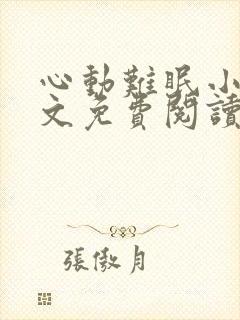 心動難眠小
文免費閱讀
張傲月